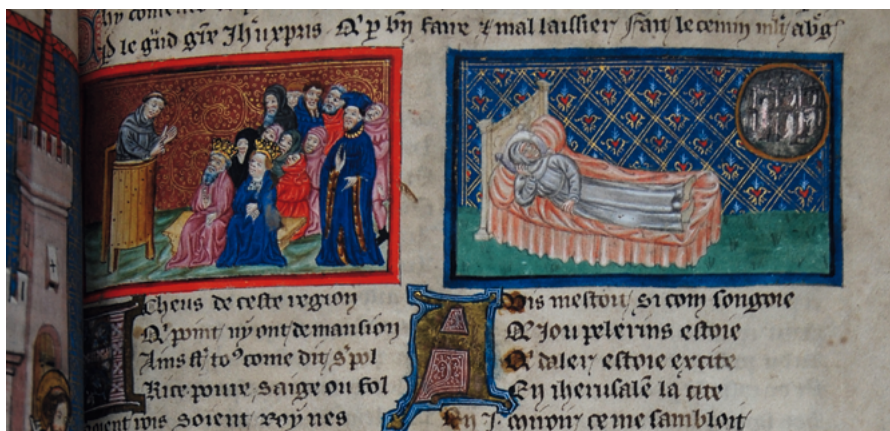 P le gnd gre Jhu xpris Q p bn faire & mal laissier fait le
A cheus de ceste region
Q point ny ont de mansion
Ains st to9 come dit s pol
Rice poure saige ou fol
soient rois soient roynes
Avis mestoit si com songoie
Q jou pelerins estoie
Q daler estoie excite
En iherusalē la cite
En J mce me sambloit